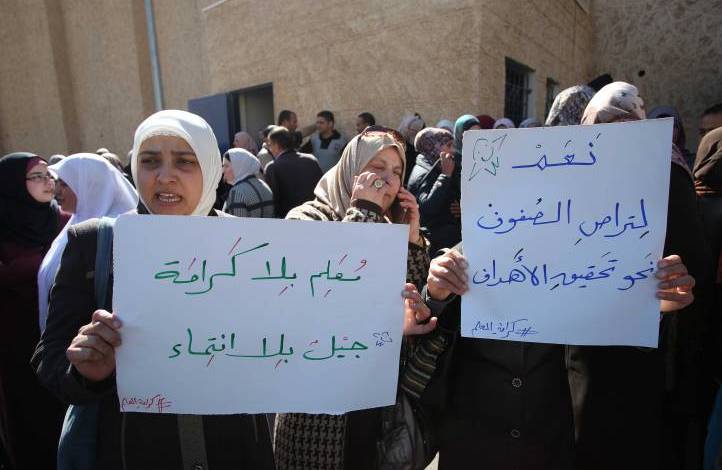 مُعَلِم بِلا كَرامَة
جيْلٌ بِلا انتِماء
#كرامة_المعلم
نَعَمْ
لِتراصِ الصُفوف
نحوَ تحقيقِ الأهداف
#كرامة_المعلم